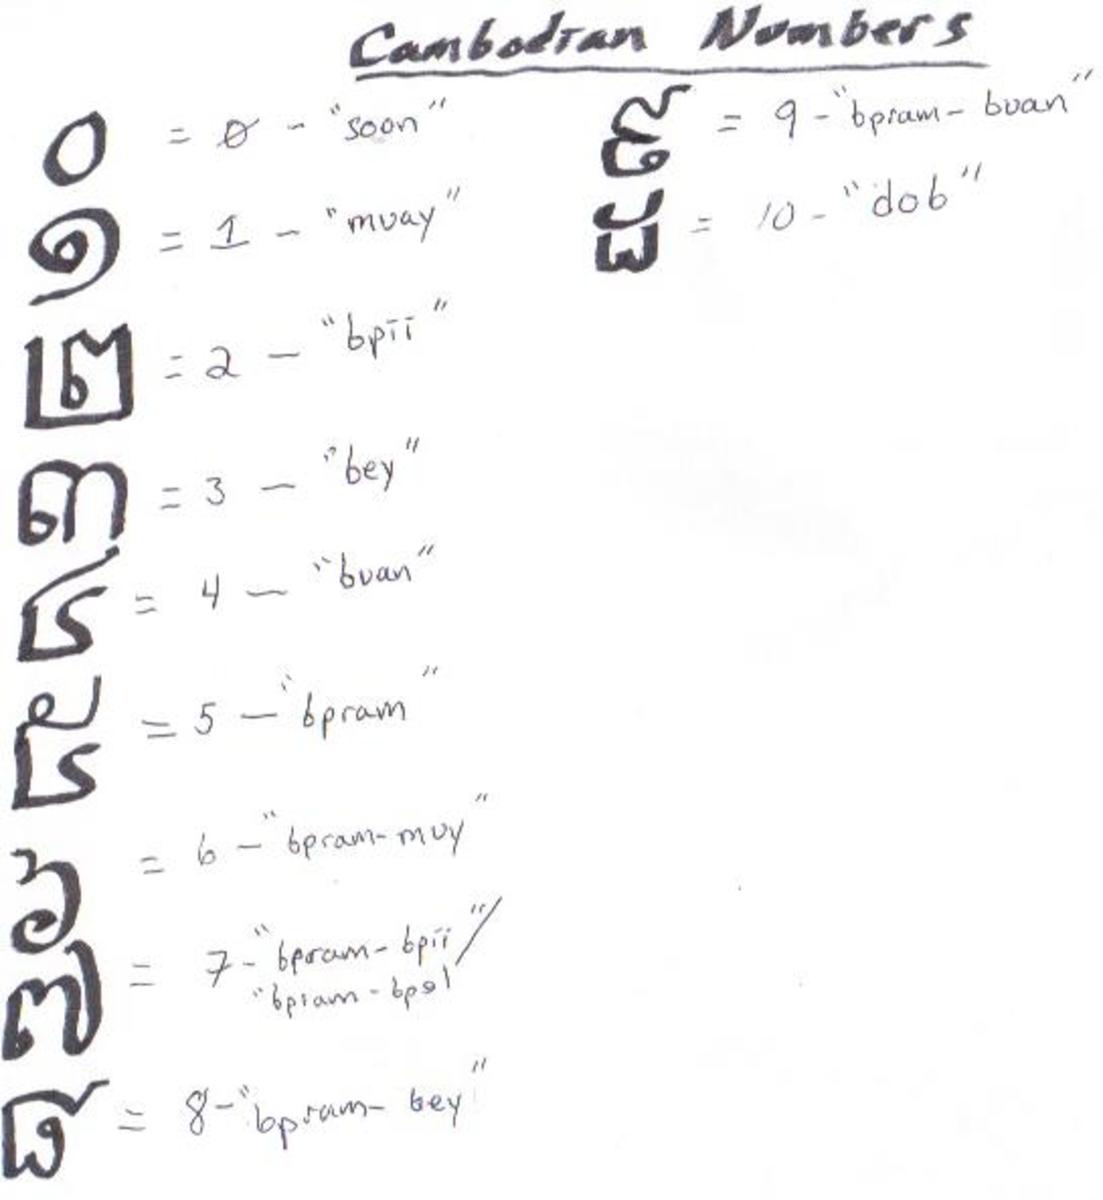 Cambodian Numbers
០ = 0 - "soon"
១ = 1 - "muay"
២ = 2 - "bpii"
៣ = 3 - "bey"
៤ = 4 - "buan"
៥ = 5 - "bpram"
៦ = 6 - "bpram-muy"
៧ = 7 - "bpram-bpii"/
"bpram-bpel
៨ = 8 - "bpram-bey"
៩ = 9 - "bpram-buan"
ដ = 10 - "dob"